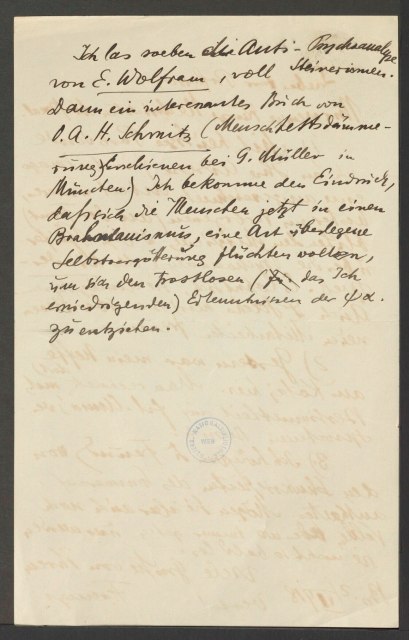 Ich las soeben die Anti-Psychoanalyse
von E. Wolfram, voll Steinerismen.
Dann ein interessantes Buch von
O. A. H. Schmitz (Menschheitsdämme-
rung) erschienen bei G. Müller in
München) Ich bekomme den Eindruck,
daß sich die Menschen jetzt in einen
Brahmanismus, eine Art überlegene
Selbstvergötterung flüchten wollen,
um sich den trostlosen (für das Ich
erniedrigenden) Erkenntnissen der ψα.
zu entziehen.